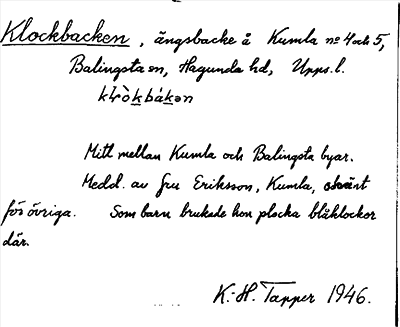 Klockbacken, ängsbacke å Kumla no 4 och 5,
Balingsta sn, Hagunda hd, Upps. l.
klòkbákən
Mitt mellan Kumla och Balingsta byar.
Medd. av fru Eriksson, Kumla, okänt
för övriga. Som barn brukade hon plocka blåklockor
där.
K.-H. Tapper 1946.